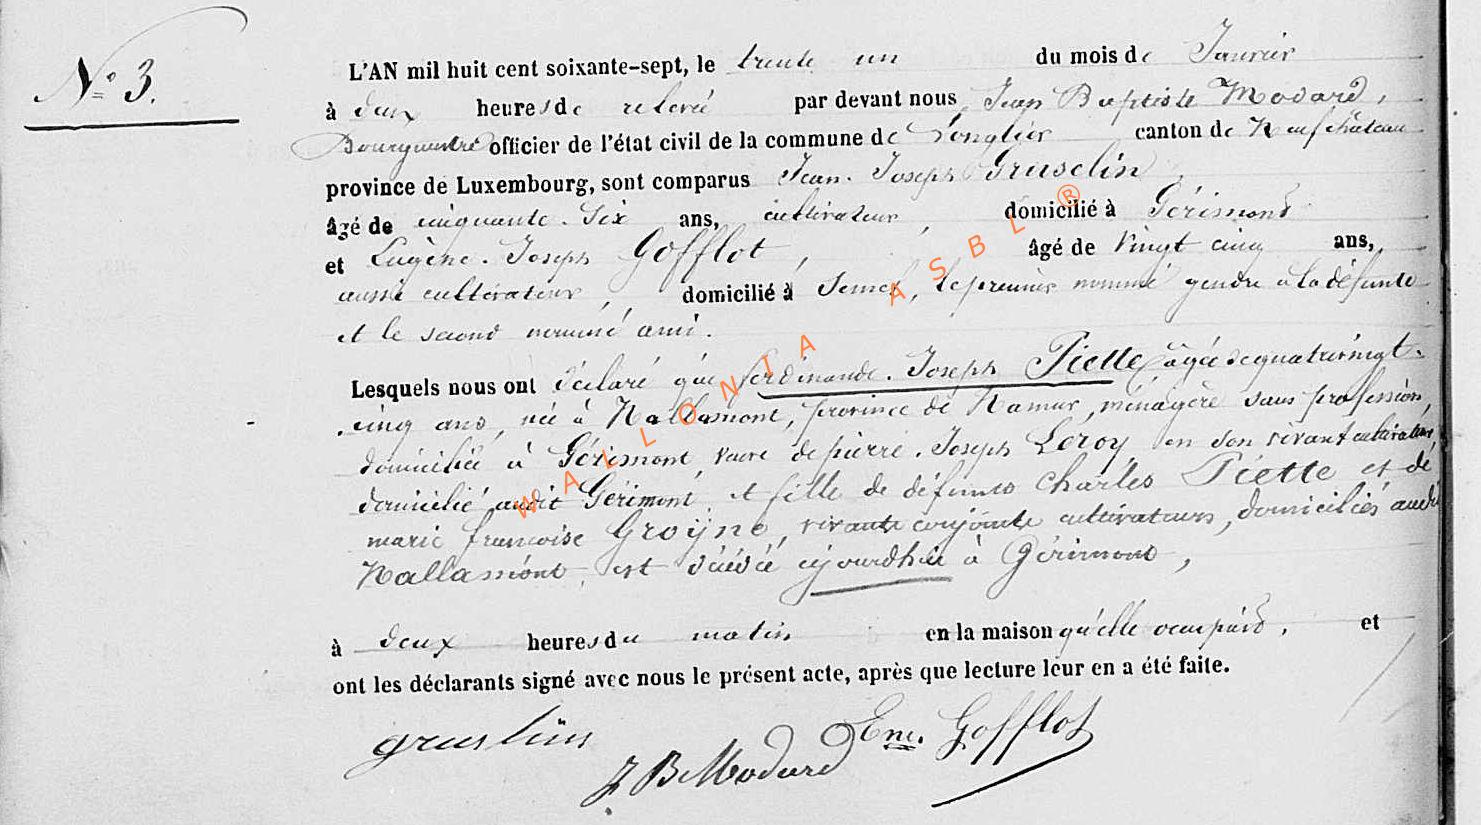 N° 3.
L'AN mil huit cent soixante-sept, le trente un du mois de Janvier
à deux heures de relevée par devant nous, Jean Baptiste Modard,
Bourgmestre officier de l'état civil de la commune de Longlier canton de Neufchâteau
province de Luxembourg, sont comparus Jean-Joseph Gruselin,
âgé de cinquante-six ans, cultivateur, domicilié à Gérimont
et Eugène-Joseph Gofflot, âgé de vingt cinq ans,
aussi cultivateur, domicilié à Semel, le premier nommé gendre à la défunte
et le second nommé ami.
Lesquels nous ont déclaré que ferdinande-Joseph Piette âgée de quatrevingt-
cinq ans, née à Nallamont, province de Namur, ménagère sans profession,
domiciliée à Gérimont, veuve de pierre-Joseph Léroy en son vivant cultivateur,
domicilié audit Gérimont, et fille de défunts Charles Piette et de
marie françoise Groÿne, vivants conjoints cultivateurs, domiciliés audit
Nallamont, est décédé ajourdhui à Gérimont,
à deux heures du matin en la maison qu'elle occupait, et
ont les déclarants signé avec nous le présent acte, après que lecture leur en a été faite.
gruslin
Ene. Gofflot
J B Modard
WALLONIA ASBL ®